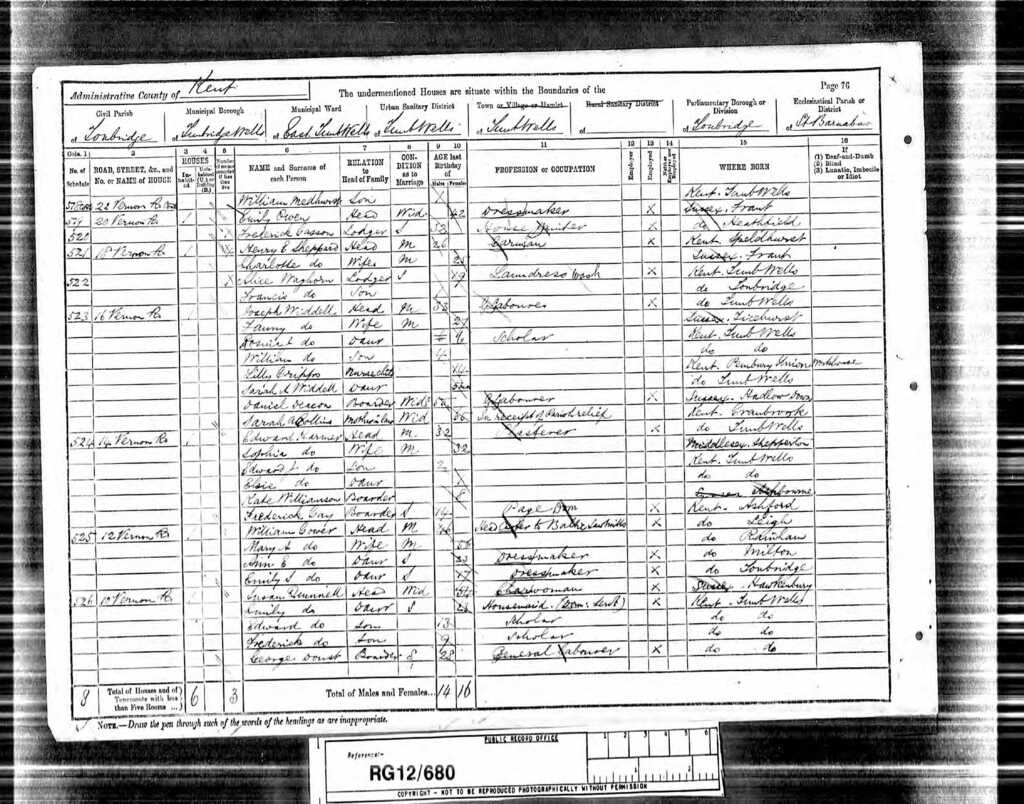 Administrative County of Kent
The undermentioned Houses are situate within the Boundaries of the
Page 76
Civil Parish of Tonbridge
Municipal Borough of Tunbridge Wells
Municipal Ward of East Tunb Wells
Urban Sanitary District of Tunb Wells
Town or Village or Hamlet of Tunb Wells
Rural Sanitary District of
Parliamentary Borough or Division of Tonbridge
Ecclesiastical Parish or District of St Barnabas
Cols. 1 2 3 4 5 6 7 8 9 10 11 12 13 14 15 16
No. of Schedule
ROAD, STREET, &c., and No. or NAME of HOUSE
HOUSES
NAME and Surname of each Person
RELATION to Head of Family
CONDITION as to Marriage
AGE last Birthday of
Males Females
PROFESSION or OCCUPATION
Employer
Employed
WHERE BORN
If (1) Deaf-and-Dumb (2) Blind (3) Lunatic, Imbecile or Idiot
William Medhurst Son Kent Tunb Wells
22 Vernon Rd
20 Vernon Rd 1 Emily Owen Head Wid 42 Dressmaker X Sussex Frant
521 Frederick Casson Lodger S 52 House Painter X do Heathfield
521 18 Vernon Rd 1 Henry E Sheppard Head M 26 Carman X Kent Speldhurst
Charlotte do Wife M Sussex Frant
522 Alice Waghorn Lodger S 19 Laundress Wash X Kent Tunb Wells
Francis do Son do Tonbridge
523 16 Vernon Rd 1 Joseph Widdell Head M G Labourer X do Tunb Wells
Fanny do Wife M 27 Sussex Ticehurst
do Daur 6 Scholar Kent Tunb Wells
William do Son 4 do do
Lilly Nurse child Kent Pembury Union Workhouse
Sarah A Widdell Daur do Tunb Wells
Daniel Deacon Boarder Widr G Labourer X Sussex Hadlow Down
Sarah A Collins Mother in law Wid In receipt of Parish relief Kent Cranbrook
524 14 Vernon Rd 1 Edward Head M 32 Plasterer X do Tunb Wells
Sophia do Wife M 32 Middlesex Shepperton
Edward J do Son 2 Kent Tunb Wells
Elsie do Daur do do
Kate Williamson Boarder 8 Ashbourne
Frederick Gay Boarder S 14 Page Dom X Kent Ashford
525 12 Vernon Rd 1 William Gower Head M X do Leigh
Mary A do Wife M do Rainham
Ann E do Daur S Dressmaker X do Milton
Emily S do Daur S 17 Dressmaker X do Tonbridge
526 10 Vernon Rd 1 Susan Head Wid Charwoman X Sussex Hawkenbury
Emily do Daur S Housemaid (Dom: Servt) X Kent Tunb Wells
Edward do Son 13 Scholar do do
Frederick do Son 9 Scholar do do
George Boarder S 28 General Labourer X do do
8 Total of Houses and of Tenements with less than Five Rooms ... 6 3 Total of Males and Females... 14 16
NOTE.—Draw the pen through such of the words of the headings as are inappropriate.
PUBLIC RECORD OFFICE
Reference:-
RG12/680
1 2 3 4 5 6
COPYRIGHT - NOT TO BE REPRODUCED PHOTOGRAPHICALLY WITHOUT PERMISSION